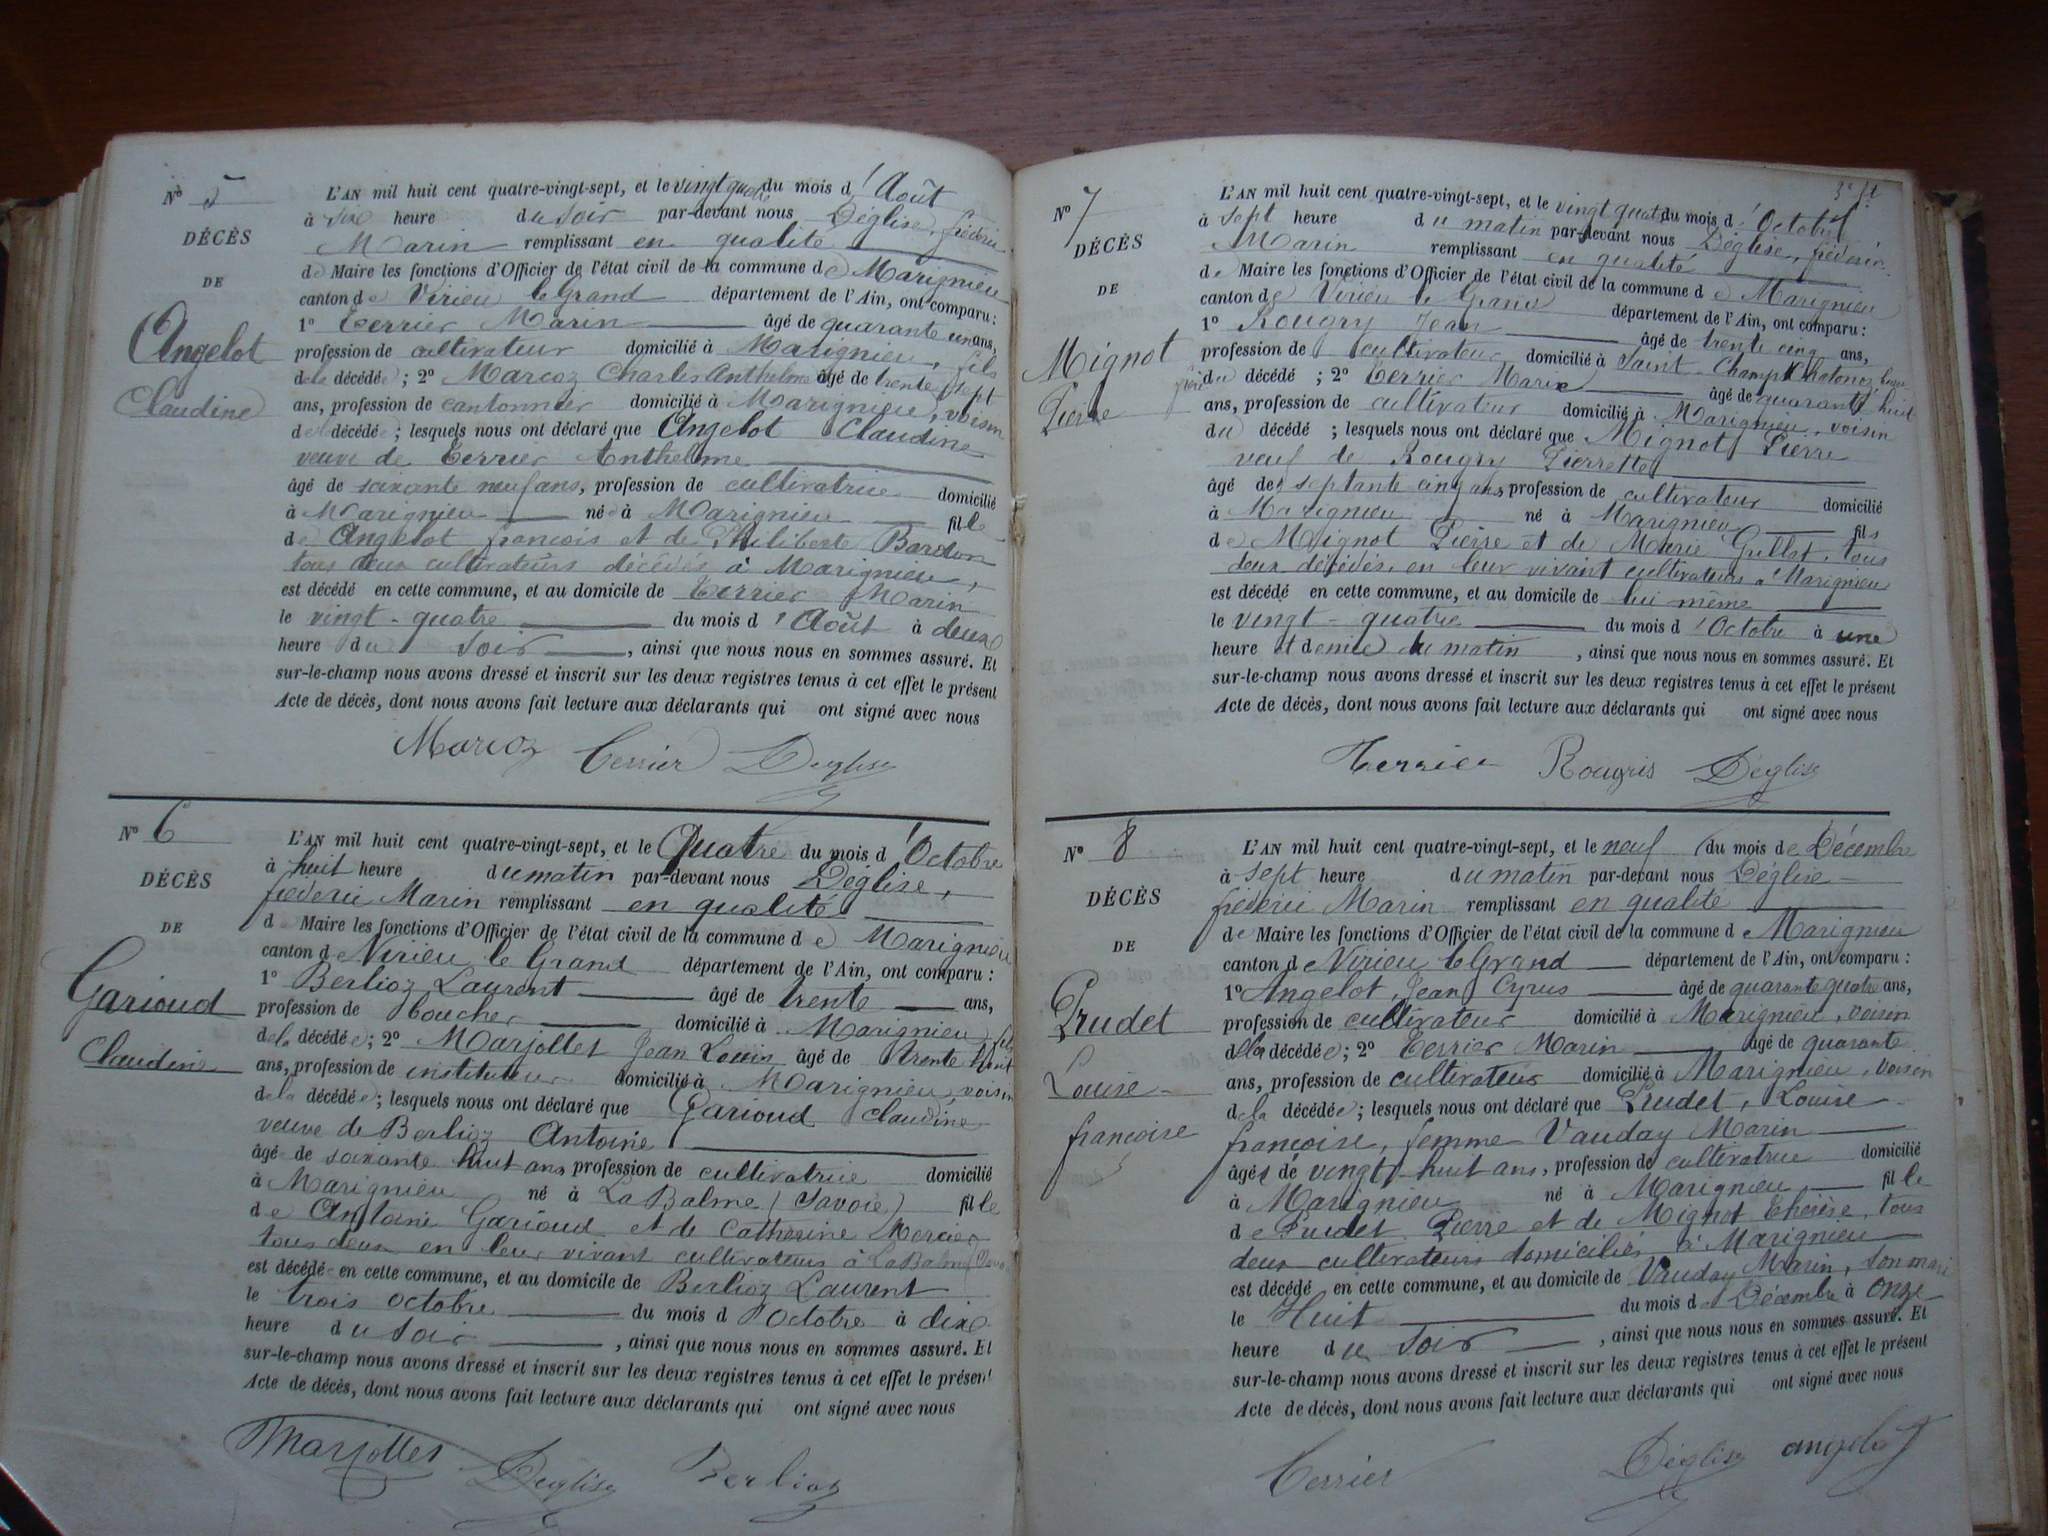 Nº 5
DÉCÈS
DE
Angelot
Claudine
L'AN mil huit cent quatre-vingt-sept, et le vingt quatre du mois d'Août
à six heure du soir par-devant nous Déglise, fréderic
Marin remplissant en qualité
de Maire les fonctions d'Officier de l'état civil de la commune de Marignieu
canton de Virieu le Grand département de l'Ain, ont comparu :
1º Terrier Marin âgé de quarante un ans,
profession de cultivateur domicilié à Marignieu, fils
de la décédée ; 2º Marcoz Charles Anthelme âgé de trente sept
ans, profession de cantonnier domicilié à Marignieu, voisin
de la décédée ; lesquels nous ont déclaré que Angelot Claudine
veuve de Terrier Anthelme
âgé de soixante neuf ans, profession de cultivatrice domicilié
à Marignieu né à Marignieu fille
de Angelot françois et de Philiberte Bardon
tous deux cultivateurs décédés à Marignieu,
est décédé en cette commune, et au domicile de Terrier Marin
le vingt-quatre du mois d'Août à deux
heure du soir, ainsi que nous nous en sommes assuré. Et
sur-le-champ nous avons dressé et inscrit sur les deux registres tenus à cet effet le présent
Acte de décès, dont nous avons fait lecture aux déclarants qui ont signé avec nous
Marcoz Terrier Déglise
Nº 6
DÉCÈS
DE
Garioud
Claudine
L'AN mil huit cent quatre-vingt-sept, et le Quatre du mois d'Octobre
à huit heure du matin par-devant nous Déglise,
fréderic Marin remplissant en qualité
de Maire les fonctions d'Officier de l'état civil de la commune de Marignieu
canton de Virieu le Grand département de l'Ain, ont comparu :
1º Berlioz Laurent âgé de trente ans,
profession de boucher domicilié à Marignieu, fils
de la décédée ; 2º Marjollet Jean Louis âgé de trente huit
ans, profession de instituteur domicilié à Marignieu, voisin
de la décédée ; lesquels nous ont déclaré que Garioud Claudine
veuve de Berlioz Antoine
âgé de soixante huit ans profession de cultivatrice domicilié
à Marignieu né à La Balme (Savoie) fille
de Antoine Garioud et de Catherine Mercier
tous deux en leur vivant cultivateurs à La Balme
est décédé en cette commune, et au domicile de Berlioz Laurent
le trois octobre du mois d'Octobre à dix
heure du soir, ainsi que nous nous en sommes assuré. Et
sur-le-champ nous avons dressé et inscrit sur les deux registres tenus à cet effet le présent
Acte de décès, dont nous avons fait lecture aux déclarants qui ont signé avec nous
Marjollet Déglise Berlioz
Nº 7
DÉCÈS
DE
Mignot
Pierre
L'AN mil huit cent quatre-vingt-sept, et le vingt quatre du mois d'Octobre
à sept heure du matin par-devant nous Déglise, fréderic
Marin remplissant en qualité
de Maire les fonctions d'Officier de l'état civil de la commune de Marignieu
canton de Virieu le Grand département de l'Ain, ont comparu :
1º Rougry Jean âgé de trente cinq ans,
profession de cultivateur domicilié à Saint-Champ Chatonod
du décédé ; 2º Terrier Marin âgé de quarante huit
ans, profession de cultivateur domicilié à Marignieu, voisin
du décédé ; lesquels nous ont déclaré que Mignot Pierre
veuf de Rougry Pierrette
âgé de septante cinq ans profession de cultivateur domicilié
à Marignieu né à Marignieu fils
de Mignot Pierre et de Marie Gullet, tous
deux décédés, en leur vivant cultivateurs à Marignieu
est décédé en cette commune, et au domicile de lui même
le vingt-quatre du mois d'Octobre à une
heure et demie du matin, ainsi que nous nous en sommes assuré. Et
sur-le-champ nous avons dressé et inscrit sur les deux registres tenus à cet effet le présent
Acte de décès, dont nous avons fait lecture aux déclarants qui ont signé avec nous
Terrier Rougris Déglise
Nº 8
DÉCÈS
DE
Prudet
Louise
françoise
L'AN mil huit cent quatre-vingt-sept, et le neuf du mois de Décembre
à sept heure du matin par-devant nous Déglise
fréderic Marin remplissant en qualité
de Maire les fonctions d'Officier de l'état civil de la commune de Marignieu
canton de Virieu le Grand département de l'Ain, ont comparu :
1º Angelot, Jean Cyrus âgé de quarante quatre ans,
profession de cultivateur domicilié à Marignieu, voisin
de la décédée ; 2º Terrier Marin âgé de quarante
ans, profession de cultivateur domicilié à Marignieu, voisin
de la décédée ; lesquels nous ont déclaré que Prudet, Louise
françoise, femme Vauday Marin
âgée de vingt-huit ans, profession de cultivatrice domicilié
à Marignieu né à Marignieu fille
de Prudet Pierre et de Mignot Thérèse, tous
deux cultivateurs domiciliés à Marignieu
est décédé en cette commune, et au domicile de Vauday Marin, son mari
le Huit du mois de Décembre à onze
heure du soir, ainsi que nous nous en sommes assuré. Et
sur-le-champ nous avons dressé et inscrit sur les deux registres tenus à cet effet le présent
Acte de décès, dont nous avons fait lecture aux déclarants qui ont signé avec nous
Terrier Déglise angelot